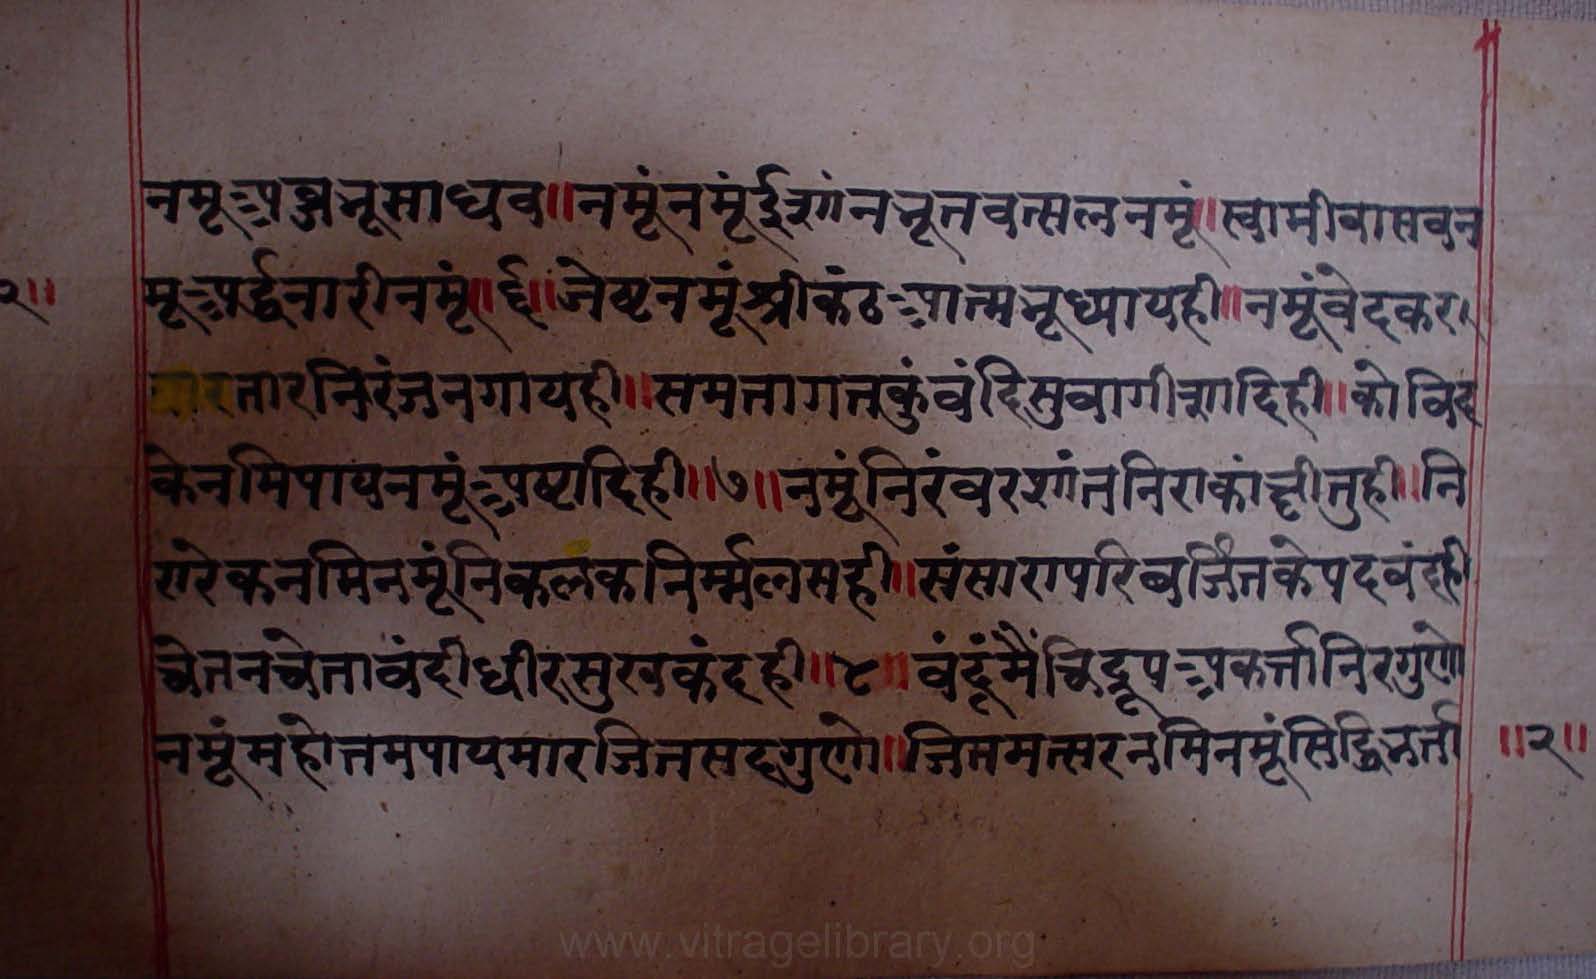 नमूं अब्जभू साधव ॥ नमूं नमूं ईशान भूतवत्सल नमूं ॥ स्वामी वासव न
२॥ मूं अर्द्धनारी नमूं ॥ ६ ॥ जेष्ट नमूं श्रीकंठ आत्मभू ध्यायही ॥ नमूं वेदकरा
तार निरंजन गायही ॥ समतागत्त कुं वंदि सुवागीशादिही ॥ कोविद
के नमि पाय नमूं अष्टादिही ॥ ७ ॥ नमूं निरंवर शांत निराकांक्षी तुही ॥ नि
रारेक नमि नमूं निकलंक निर्म्मल सही ॥ संसारापरिवर्जित के पद वंदही
चेतन चेता वंदी धीर सुखकंदही ॥ ८ ॥ वंदूं मैं चिद्रूप अकर्त्ता निरगुणो
नमूं महोत्तम पाय मारजित सदगुणो ॥ जितमत्सर नमि नमूं सिद्धिभर्त्ता ॥२॥
www.vitragelibrary.org